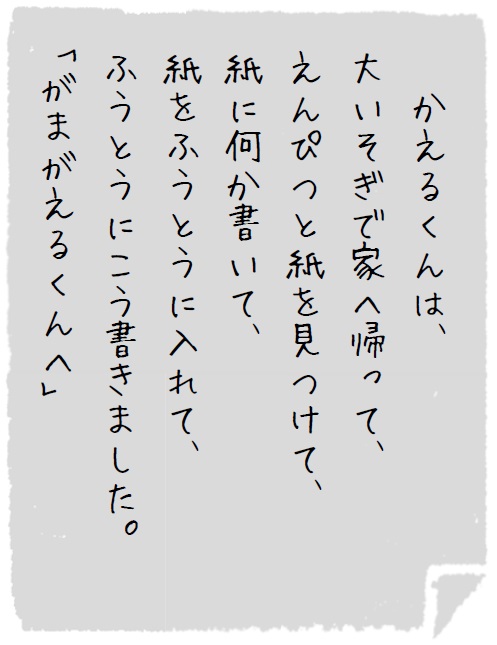 かえるくんは、
大いそぎで家へ帰って、
えんぴつと紙を見つけて、
紙に何か書いて、
紙をふうとうに入れて、
ふうとうにこう書きました。
「がまがえるくんへ」